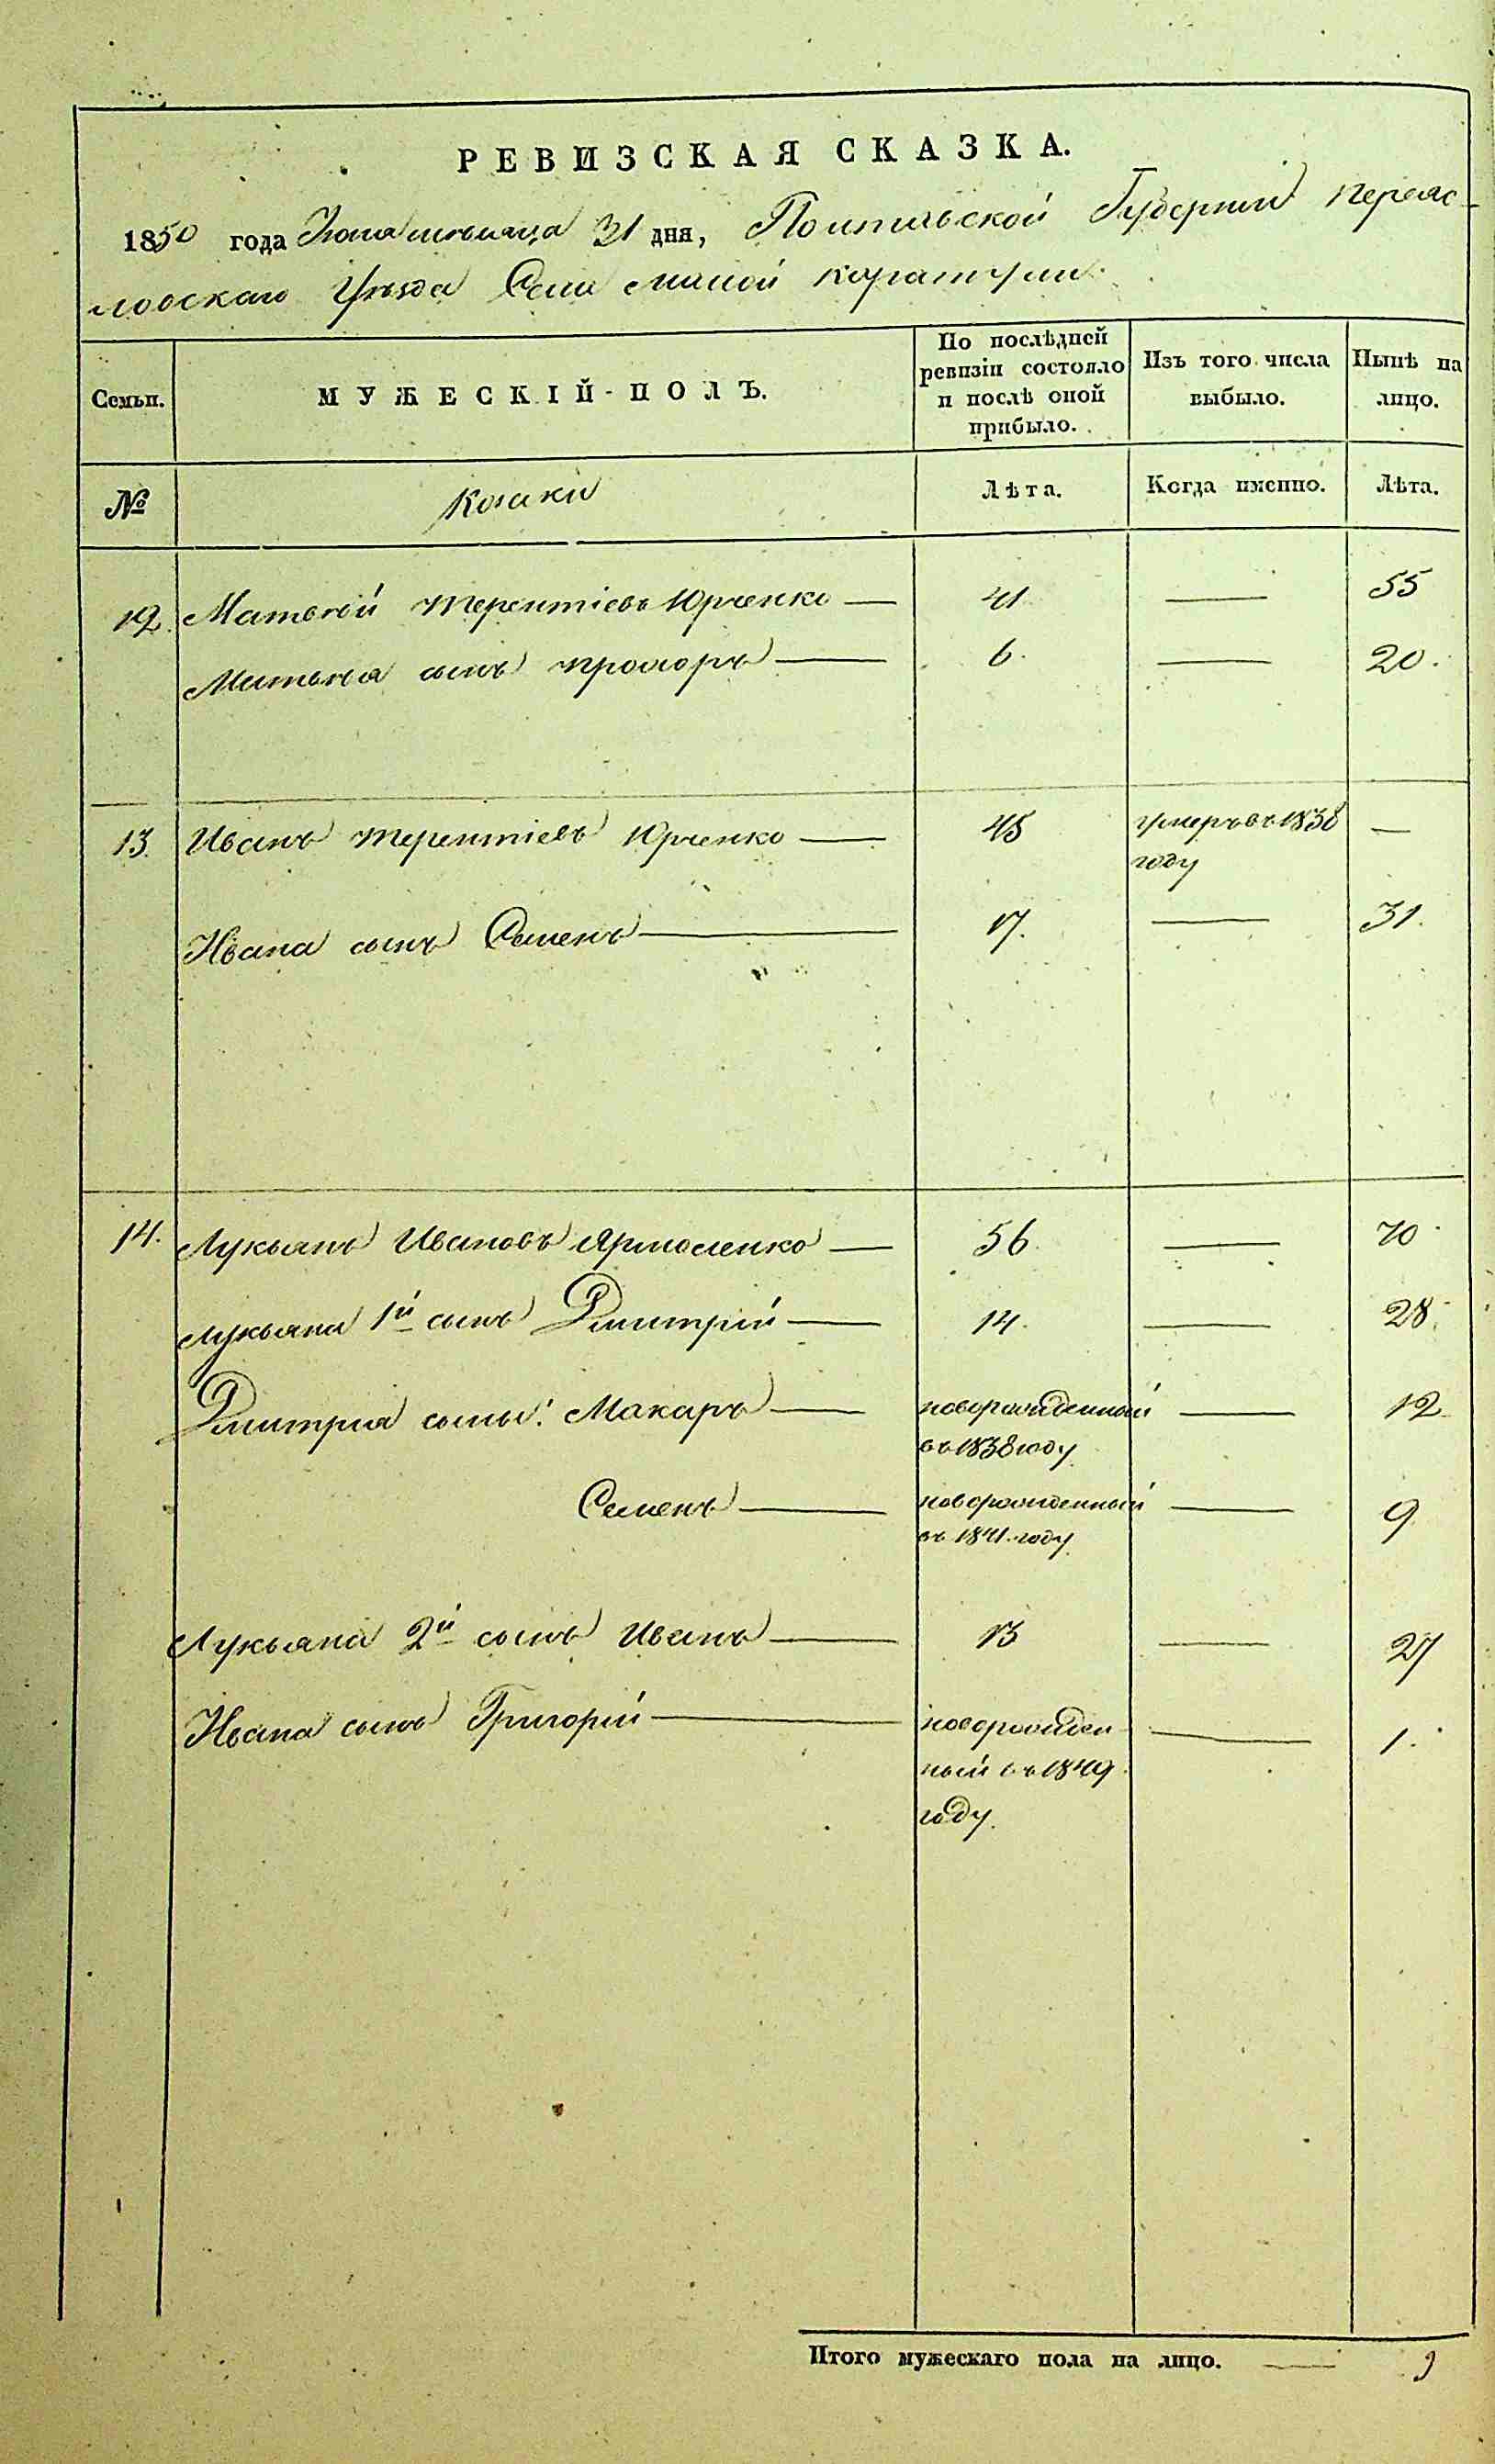 РЕВИЗСКАЯ СКАЗКА.
1850 года Іюля мѣсяца 31 дня, Полтавской Губерніи Переяс-
ловскаго Уѣзда Села Малой Каратули
Семьи. МУЖЕСКІЙ-ПОЛЪ. По послѣдней ревизіи состояло и послѣ оной прибыло. Изъ того числа выбыло. Нынѣ на лицо.
№ Козаки Лѣта. Когда именно. Лѣта.
12. Матвѣй Терентіевъ Юрченко — 41. — 55
Матвѣя сынъ Прохоръ — 6. — 20.
13. Иванъ Терентіевъ Юрченко — 45 умеръ въ 1838 году —
Ивана сынъ Семенъ — 17. — 31.
14. Лукьянъ Ивановъ Ярмоленко — 56. — 70.
Лукьяна 1й сынъ Дмитрій — 14. — 28.
Дмитрия сыны: Макаръ — новорожденный — 12.
въ 1838 году.
Семенъ — новорожденный — 9
въ 1841. году.
Лукьяна 2й сынъ Иванъ — 13 — 27
Ивана сынъ Григорій — новорожден — 1.
ный въ 1849
году.
Итого мужескаго пола на лицо. —